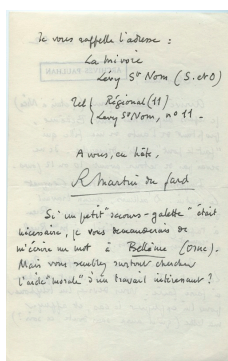 Je vous rappelle l'adresse :
La Mivoie
Lévy St Nom (S. et O)
Tel { Régional (11)
Lévy St Nom, n° 11 -
A vous, en hâte,
R Martin du Gard
Si un petit "secours-galette" était
nécessaire, je vous demanderais de
m'écrire un mot à Bellême (Orne).
Mais vous semblez surtout chercher
l'aide "morale" d'un travail intéressant ?